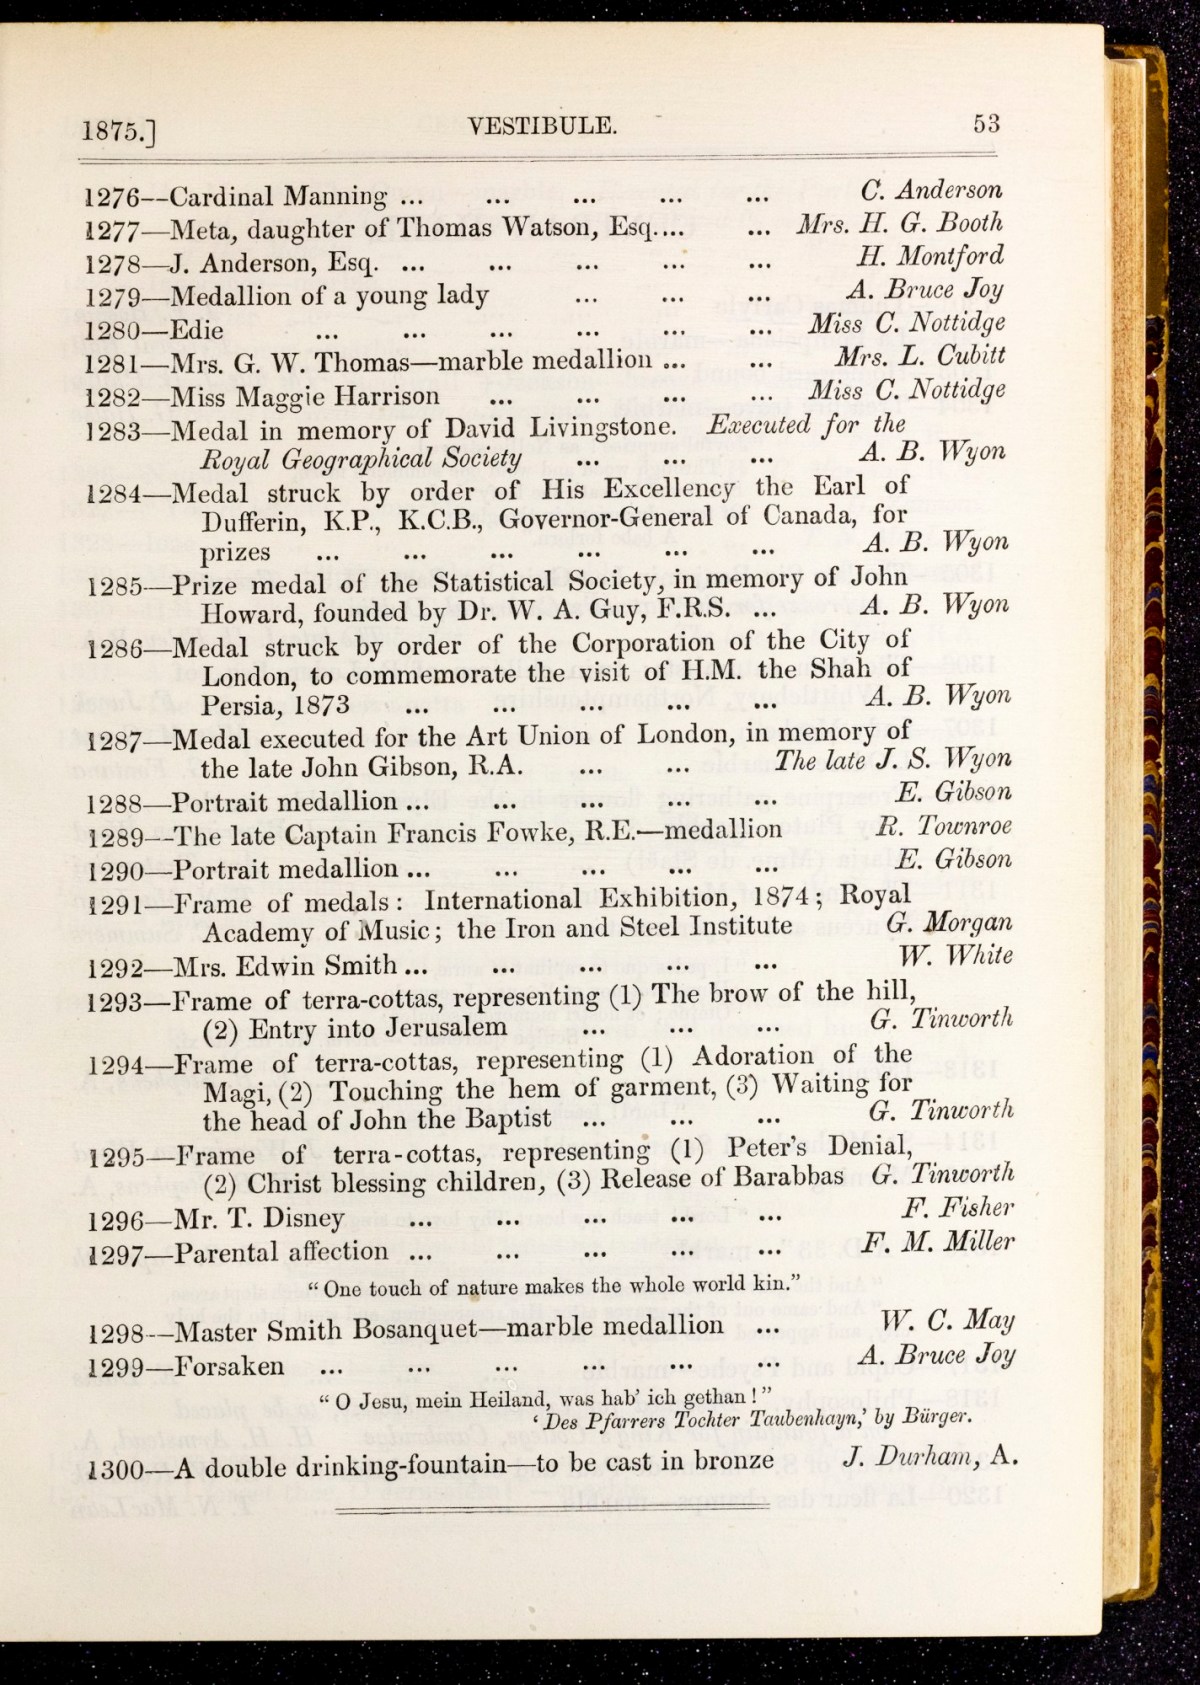 1875.] VESTIBULE. 53
1276—Cardinal Manning ... ... ... ... ... C. Anderson
1277—Meta, daughter of Thomas Watson, Esq.... ... Mrs. H. G. Booth
1278—J. Anderson, Esq. ... ... ... ... ... H. Montford
1279—Medallion of a young lady ... ... ... A. Bruce Joy
1280—Edie ... ... ... ... ... ... Miss C. Nottidge
1281—Mrs. G. W. Thomas—marble medallion ... ... Mrs. L. Cubitt
1282—Miss Maggie Harrison ... ... ... ... Miss C. Nottidge
1283—Medal in memory of David Livingstone. Executed for the
Royal Geographical Society ... ... ... A. B. Wyon
1284—Medal struck by order of His Excellency the Earl of
Dufferin, K.P., K.C.B., Governor-General of Canada, for
prizes ... ... ... ... ... ... A. B. Wyon
1285—Prize medal of the Statistical Society, in memory of John
Howard, founded by Dr. W. A. Guy, F.R.S. ... A. B. Wyon
1286—Medal struck by order of the Corporation of the City of
London, to commemorate the visit of H.M. the Shah of
Persia, 1873 ... ... ... ... ... A. B. Wyon
1287—Medal executed for the Art Union of London, in memory of
the late John Gibson, R.A. ... ... The late J. S. Wyon
1288—Portrait medallion ... ... ... ... ... E. Gibson
1289—The late Captain Francis Fowke, R.E.—medallion R. Townroe
1290—Portrait medallion ... ... ... ... ... E. Gibson
1291—Frame of medals: International Exhibition, 1874; Royal
Academy of Music; the Iron and Steel Institute G. Morgan
1292—Mrs. Edwin Smith ... ... ... ... ... W. White
1293—Frame of terra-cottas, representing (1) The brow of the hill,
(2) Entry into Jerusalem ... ... ... G. Tinworth
1294—Frame of terra-cottas, representing (1) Adoration of the
Magi, (2) Touching the hem of garment, (3) Waiting for
the head of John the Baptist ... ... ... G. Tinworth
1295—Frame of terra-cottas, representing (1) Peter's Denial,
(2) Christ blessing children, (3) Release of Barabbas G. Tinworth
1296—Mr. T. Disney ... ... ... ... ... F. Fisher
1297—Parental affection ... ... ... ... ... F. M. Miller
"One touch of nature makes the whole world kin."
1298—Master Smith Bosanquet—marble medallion ... W. C. May
1299—Forsaken ... ... ... ... ... ... A. Bruce Joy
"O Jesu, mein Heiland, was hab' ich gethan!"
'Des Pfarrers Tochter Taubenhayn,' by Bürger.
1300—A double drinking-fountain—to be cast in bronze J. Durham, A.